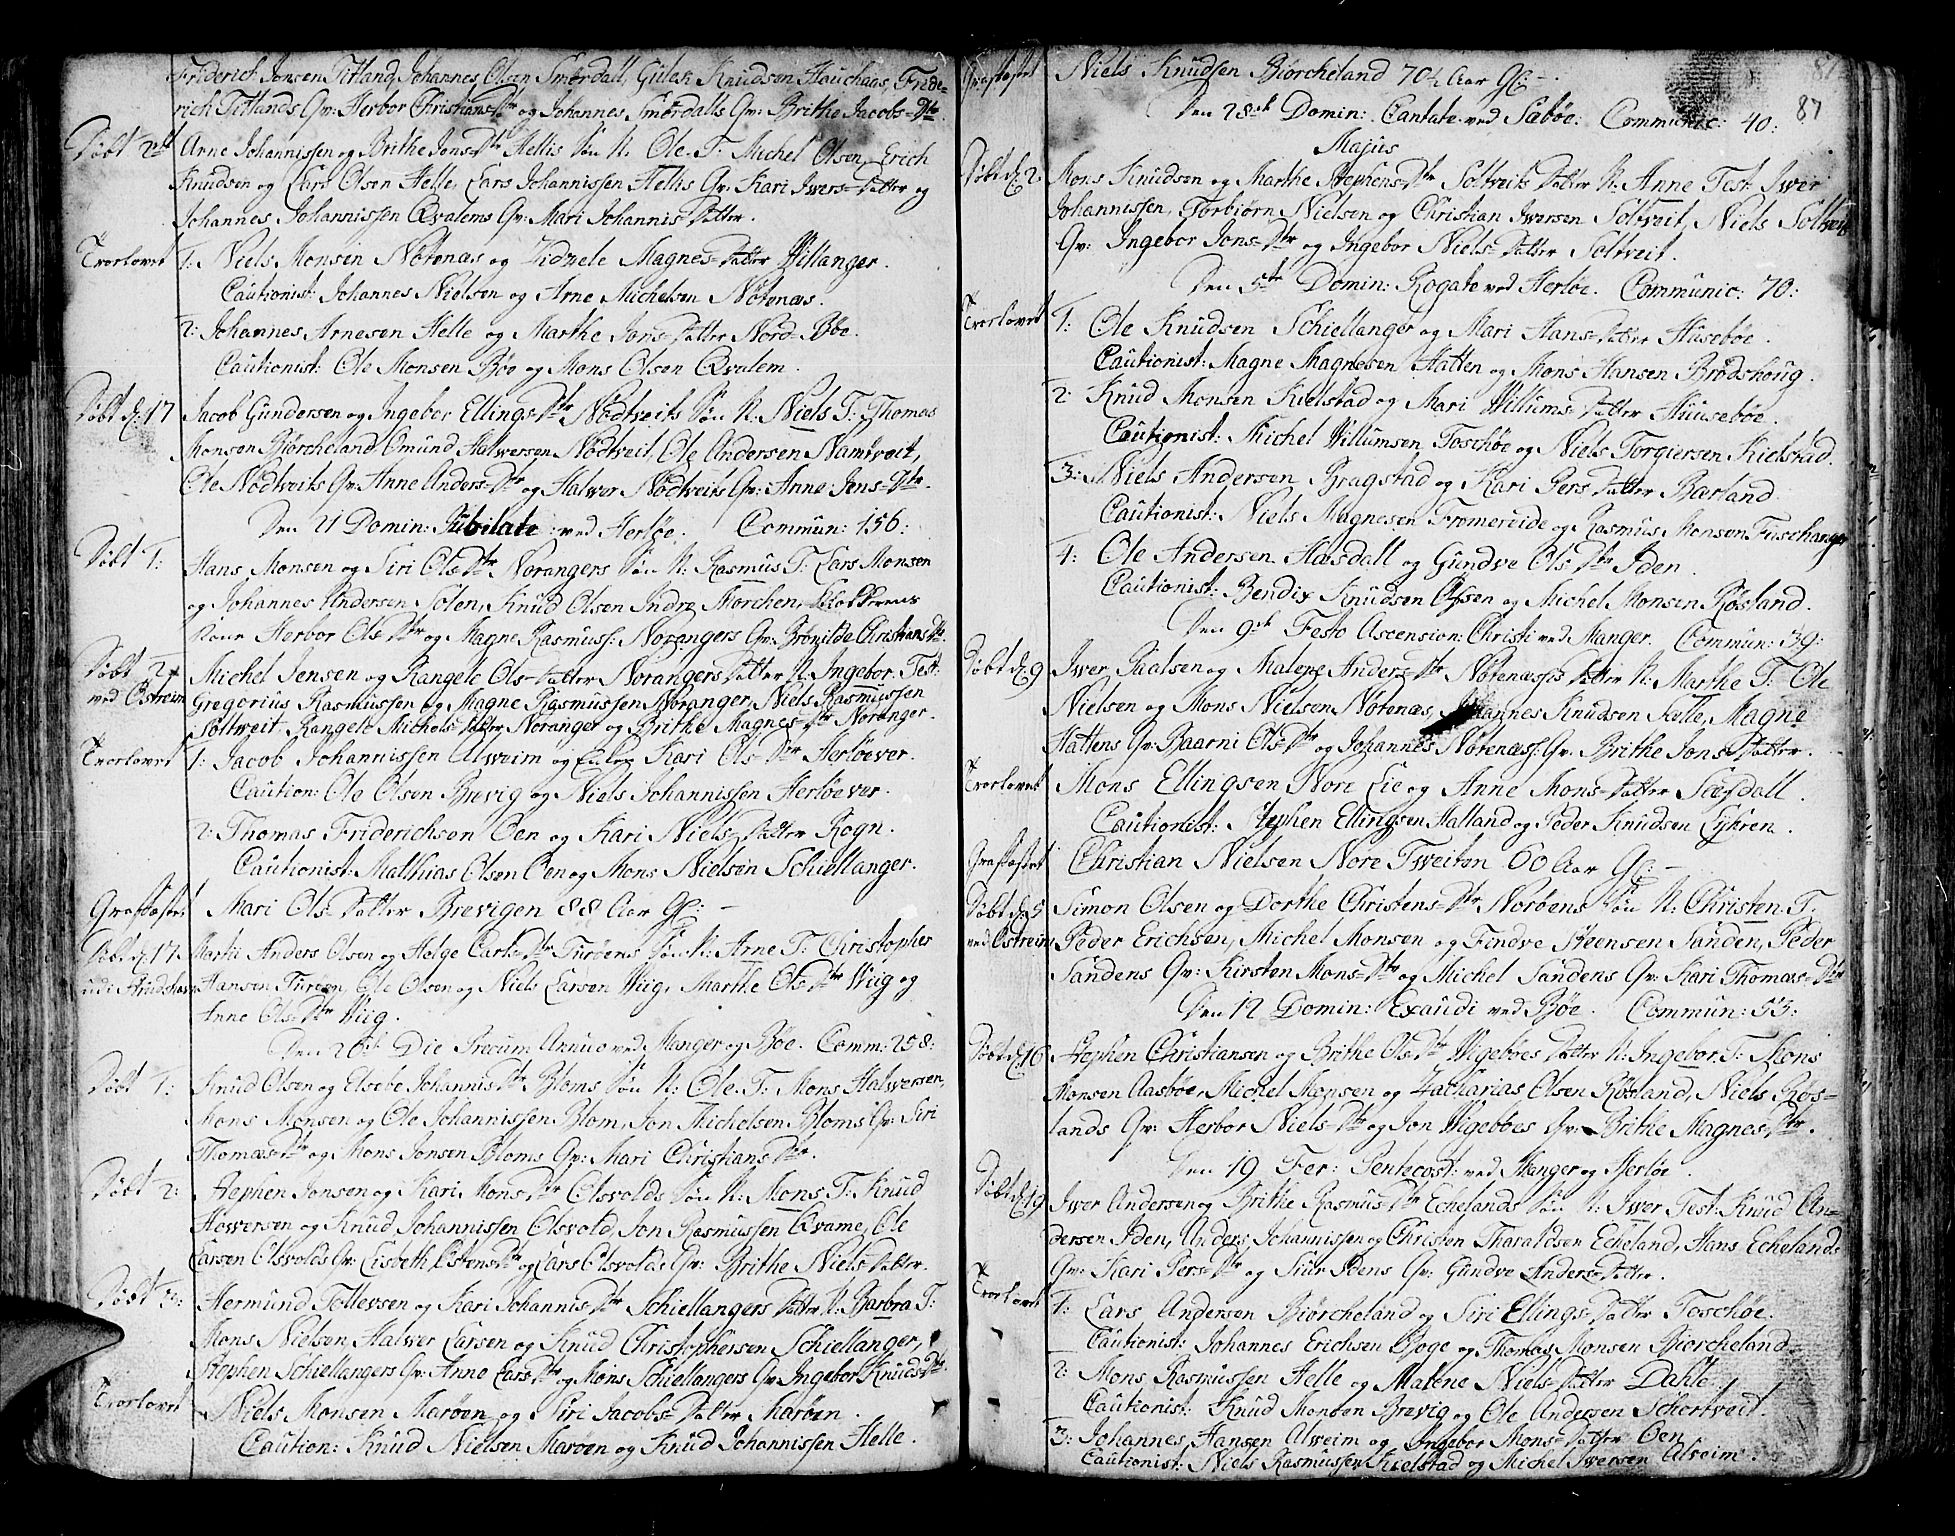 Friderich Jonsen Titland, Johannes Olsen Smørdall, Gulek Knudsen Hauchaas, Fride-
rich Titlands Qv: Herbor Christians-Dtr og Johannes Smørdalls Qv: Brithe Jacobs-Dtr.
Døbt 2det Arne Johannissen og Brithe Jons-Dtr Hellis Søn N: Ole. T: Michel Olsen, Erich
Knudsen og Lars Olsen Helle, Lars Johannissen Hellis Qv: Kari Iwers-Datter og
Johannes Johannissen Qvalems Qv: Mari Johannis-Datter.
Trorlovet 1: Niels Monsen Nøtenæs og Zidzele Magnes-Datter Willanger.
Cautionist: Johannes Nielsen og Arne Michelsen Nøtenæs.
2: Johannes Arnesen Helle og Marthe Jons-Datter Nord-Bøe.
Cautionist: Ole Monsen Bøe og Mons Olsen Qvalem.
Døbt d: 17 Jacob Gundersen og Ingebor Ellings-Dtr Nødtveits Søn N: Niels T: Thomas
Monsen Biørcheland, Omund Halwersen Nødtveit, Ole Andersen Namtveit,
Ole Nødtveits Qv: Anne Anders-Dtr og Halwer Nødtveits Qv: Anne Jens-Dtr.
Den 21 Domin: Jubilate: ved Herløe. Commun: 156:
Døbt 1: Hans Monsen og Siri Ols-Dtr Norangers Søn N: Rasmus T: Lars Monsen
og Johannes Andersen Solen, Knud Olsen Indre Morchen, Klokkerens
Herbor Ols-Dtr og Magne Rasmuss: Norangers Qv: Brønilde Christians Dtr
Døbt 2 Michel Jensen og Rangele Ols-Datter Norangers Datter N: Ingebor. Test:
ved Østreim Gregorius Rasmussen og Magne Rasmussen Noranger, Niels Rasmussen
Soltveit. Rangele Michels-Datter Noranger og Brithe Magnes-Dtr Noranger.
Trorlovet 1: Jacob Johannissen Alveim og Enken Kari Ols-Dtr Herløever.
Caution: Ole Olsen Brevig og Niels Johannissen Herløever.
2: Thomas Friderichsen Oen og Kari Niels-Datter Rogn.
Cautionist: Mathias Olsen Oen og Mons Nielsen Schiellanger.
Grafæstet Mari Ols-Datter Brevigen 88 Aar G: –
Døbt d: 17 Anders Olsen og Helge Carls-Dtr Turøens Søn N: Arne T: Christopher
Hansen Turøen, Ole Olsen og Niels Larsen Wiig, Marthe Ols Dtr Wiig og
Anne Ols-Dtr Wiig.
Den 26de Die Precum Annuo ved Manger og Bøe. Comm: 258:
Døbt 1: Knud Olsen og Elsebe Johannis Dtr Bloms Søn N: Ole. T: Mons Halwersen,
Mons Monsen og Ole Johannissen Blom, Jon Michelsen Bloms Qv: Siri
Thomæs-Dtr og Mons Jonsen Bloms Qv: Mari Christians Dtr.
Døbt 2: Stephen Jonsen og Kari Mons Dtr Olsvolds Søn N: Mons T: Knud
Hawersen og Knud Johannissen Olsvold, Jon Rasmussen Qvame, Ole
Larsen Olsvolds Qv: Lisbeth Østens Dtr og Lars Olsvolds Qv: Brithe Niels Datter.
Døbt 3: Hermund Tollevsen og Kari Johannis-Dtr Schiellangers Datter N: Barbra T:
Mons Nielsen, Halwer Larsen og Knud Christophersen Schiellanger,
Stephen Schiellangers Qv: Anne Lars Dtr og Mons Schiellangers Qv: Ingebor Knuds Dtr
Trorlovet Niels Monsen Marøen og Siri Jacobs-Datter Marøen.
Caution: Knud Nielsen Marøen og Knud Johannissen Helle.
87
Grafæstet Niels Knudsen Biørcheland 70½ Aar G: –.
Den 28de Domin: Cantate ved Sæbøe: Communic: 40:
Majus
Døbt d: 2: Mons Knudsen og Marthe Stephens-Dtr Soltveits Datter N: Anne Test: Iwer
Johannissen, Torbiørn Nielsen og Christian Iwersen Soltveit, Niels Soltveits
Qv: Ingebor Jons-Dtr og Ingebor Niels-Datter Soltveit.
Den 5te Domin: Rogate ved Herløe. Communic: 70:
Trorlovet 1: Ole Knudsen Schiellanger og Mari Hans-Datter Husebøe.
Cautionist: Magne Magnesen Hatten og Mons Hansen Brødshoug.
2: Knud Monsen Kielstad og Mari Willums-Datter Huusebøe.
Cautionist: Michel Willumsen Toschøe og Niels Torgiersen Kielstad.
3: Niels Andersen Bragstad og Kari Pers Datter Barland.
Cautionist: Niels Magnesen Fromereide og Rasmus Monsen Fuschanger
4: Ole Andersen Hæsdall og Gundve Ols Dtr Iden.
Cautionist: Bendix Knudsen Olsen og Michel Monsen Røsland.
Den 9de Festo Ascension: Christi ved Manger. Commun: 39:
Døbt d: 9 Iwer Paalsen og Malene Anders-Dtr Nøtenæses Datter N: Marthe T: Ole
Nielsen og Mons Nielsen Nøtenæs, Johannes Knudsen Fælle, Magne
Hattens Qv: Baarni Ols-Dtr og Johannes Nøtenæs: Qv: Brithe Jons Datter.
Trorlovet Mons Ellingsen Nore Lie og Anne Mons-Datter Sæsdall.
Cautionist: Stephen Ellingsen Halland og Peder Knudsen Lykren.
Grafæstet Christian Nielsen Nore Tweiten 60 Aar G: –
Døbt d: 5 Simon Olsen og Dorthe Christens-Dtr Norbens Søn N: Christen. T:
ved Østreim Peder Erichsen, Michel Monsen og Findve Steensen Sanden, Peder
Sandens Qv: Kirsten Mons-Dtr og Michel Sandens Qv: Kari Thomæs-Dtr
Den 12 Domin: Exaudi ved Bøe. Commun: 55:
Døbt d: 16 Stephen Christiansen og Brithe Ols Dtr Wigebøes Datter N: Ingebor. T: Mons
Monsen Aasbøe, Michel Monsen og Zacharias Olsen Røsland, Niels Røs-
lands Qv: Herbor Niels-Dtr og Jon Wigebøes Qv: Brithe Magnes-Dtr.
Den 19 Fer: Pentecost: ved Manger og Herløe.
Døbt d: 19 Iwer Andersen og Brithe Rasmus-Dtr Echelands Søn N: Iwer Test: Knud An-
dersen Iden, Anders Johannissen og Christen Tharaldsen Echeland, Hans Echelands
Qv: Kari Pers-Dtr og Siur Idens Qv: Gundve Anders-Datter.
Trorlovet 1: Lars Andersen Biørcheland og Siri Ellings-Datter Toschøe.
Cautionist: Johannes Erichsen Bøge og Thomas Monsen Biørcheland.
2: Mons Rasmussen Helle og Malene Niels-Datter Dahle.
Cautionist: Knud Monsen Brevig og Ole Andersen Schortveit.
3: Johannes Hansen Alveim og Ingebor Mons-Datter Oen
Cautionist: Niels Rasmussen Kielstad og Michel Iwersen Alveim.